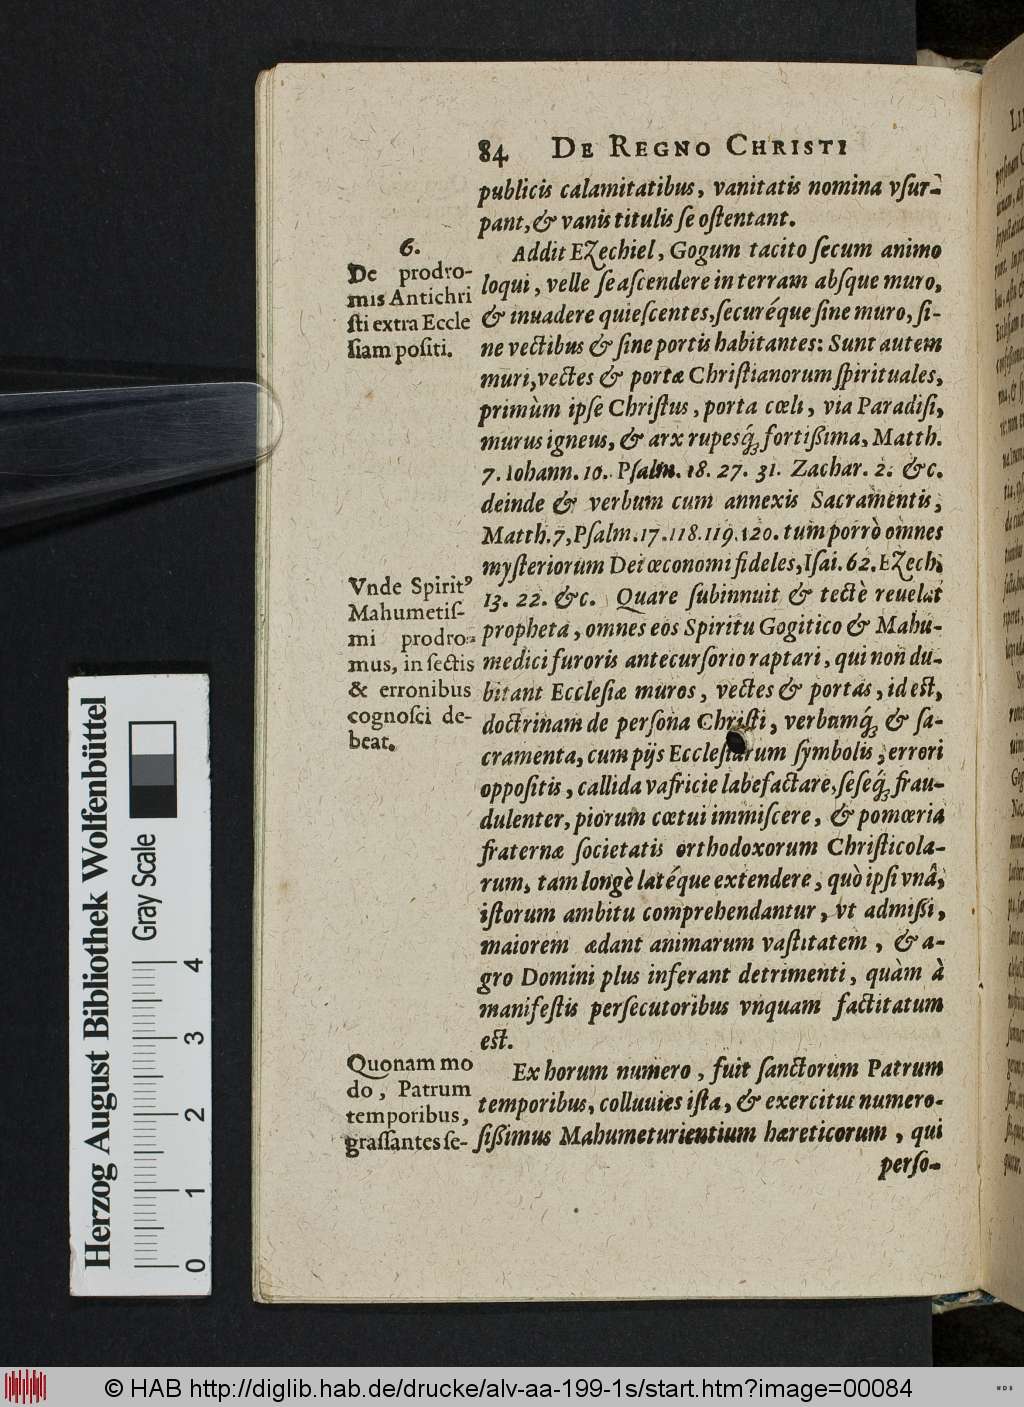 84 DE REGNO CHRISTI
publicis calamitatibus, vanitatis nomina vſur-
pant, & vanis titulis ſe oſtentant.
6.
De prodro-
mis Antichri
ſti extra Eccle
ſiam poſiti.
Addit EZechiel, Gogum tacito ſecum animo
loqui, velle ſe aſcendere in terram abſque muro,
& inuadere quieſcentes, ſecuréque ſine muro, ſi-
ne vectibus & ſine portis habitantes: Sunt autem
muri, vectes & portæ Chriſtianorum ſpirituales,
primùm ipſe Chriſtus, porta cœli, via Paradiſi,
murus igneus, & arx rupesq́ꝫ fortißima, Matth.
7. Iohann. 10. Pſalm. 18. 27. 31. Zachar. 2. &c.
deinde & verbum cum annexis Sacramentis,
Matth. 7, Pſalm. 17. 118. 119. 120. tum porrò omnes
myſteriorum Dei œconomi fideles, Iſai. 62. EZech.
13. 22. &c. Quare ſubinnuit & tectè reuelat
propheta, omnes eos Spiritu Gogitico & Mahu-
medici furoris antecurſorio raptari, qui non du-
bitant Eccleſiæ muros, vectes & portas, id eſt,
doctrinam de perſona Chriſti, verbumq́ꝫ & ſa-
cramenta, cum pijs Eccleſiarum ſymbolis, errori
oppoſitis, callida vafricie labefactare, ſeſeq́ꝫ frau-
dulenter, piorum cœtui immiſcere, & pomœria
fraternæ ſocietatis orthodoxorum Chriſticola-
rum, tam longè latéque extendere, quò ipſi vnâ,
iſtorum ambitu comprehendantur, vt admißi,
maiorem ædant animarum vaſtitatem, & a-
gro Domini plus inferant detrimenti, quàm à
manifeſtis perſecutoribus vnquam factitatum
eſt.
Vnde Spiritꝰ
Mahumetiſ-
mi prodro-
mus, in ſectis
& erronibus
cognoſci de-
beat.
Ex horum numero, fuit ſanctorum Patrum
temporibus, colluuies iſta, & exercitus numero-
ſißimus Mahumeturientium hæreticorum, qui
perſo-
Quonam mo
do, Patrum
temporibus,
graſſantes ſe-
Herzog August Bibliothek Wolfenbüttel
Gray Scale
0 1 2 3 4
© HAB http://diglib.hab.de/drucke/alv-aa-199-1s/start.htm?image=00084